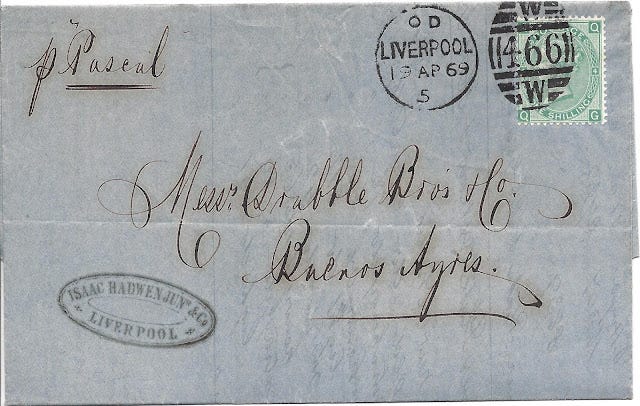 p "Pascal
O D
LIVERPOOL
19 AP 69
5
W
466
W
Q
E SHILLING
Q G
Messrs Drabble Bros & Co.
Buenos Ayres.
ISAAC HADWEN JUNR & CO
LIVERPOOL